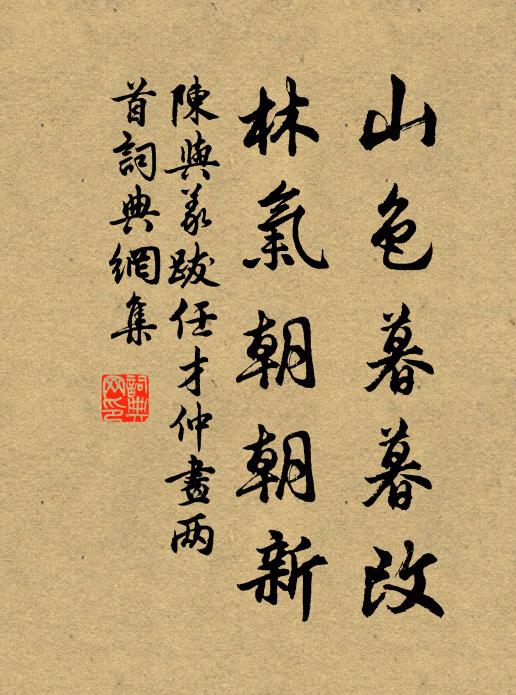 山色暮暮改
林氣朝朝新
陳與義跋任才仲畫两
首詞典網集
詞典
网印